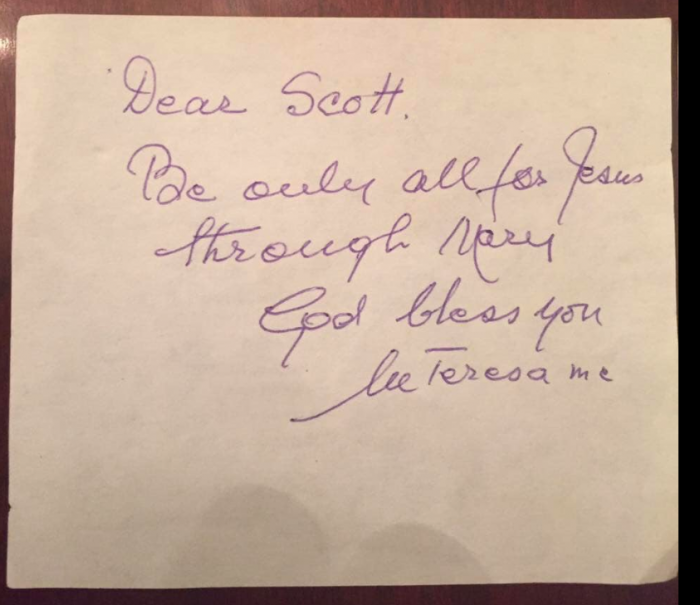 Dear Scott.
Be only all for Jesus
through Mary
God bless you
M Teresa mc